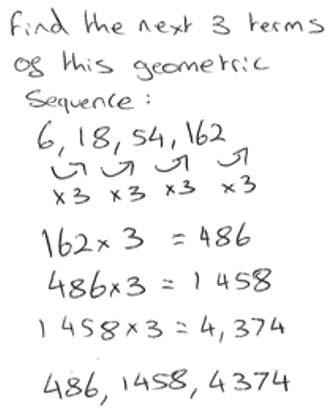 find the next 3 terms
of this geometric
Sequence :
6, 18, 54, 162
x3 x3 x3 x3
162 x 3 = 486
486 x 3 = 1 458
1 458 x 3 = 4, 374
486, 1458, 4374